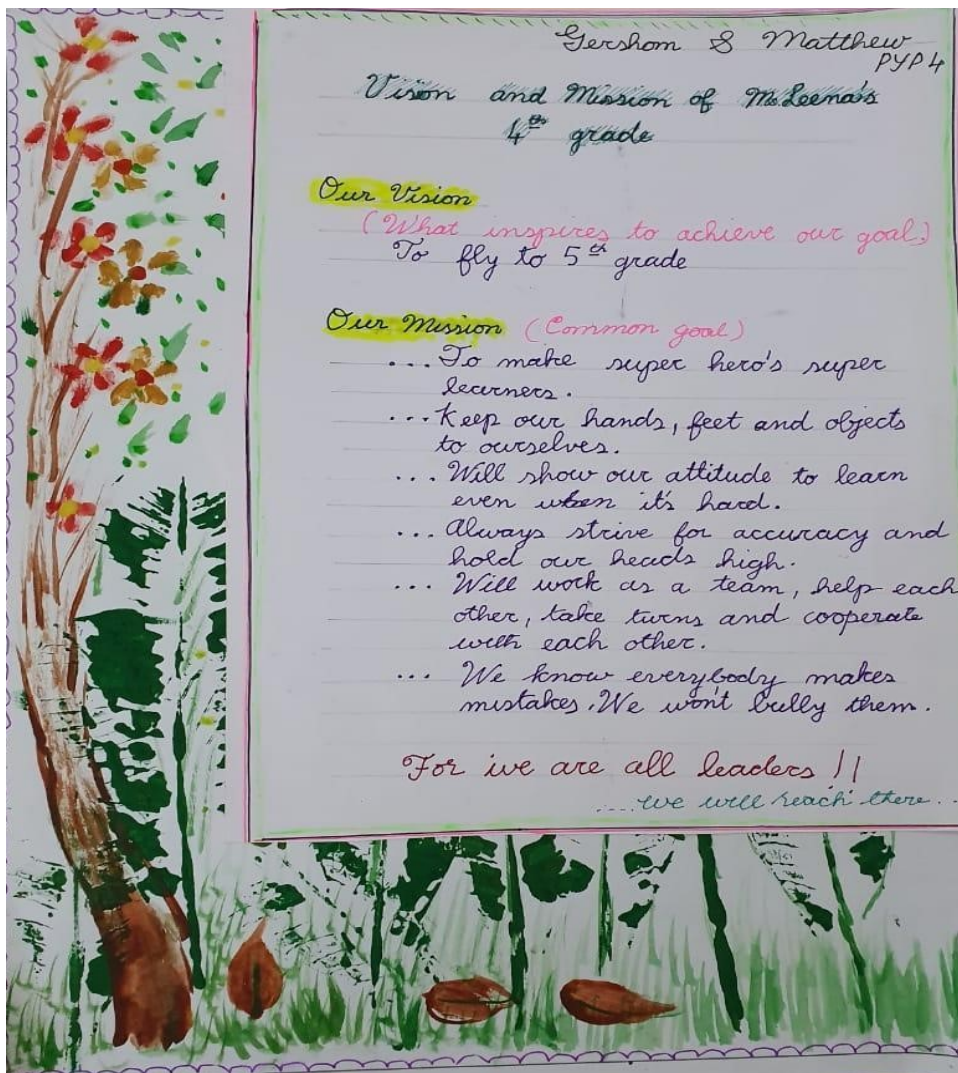 Gershom S Matthew
PYP 4
Vision and Mission of Ms Leena's
4th grade
Our Vision
(What inspires to achieve our goal)
To fly to 5th grade
Our Mission (Common goal)
... To make super hero's super
learners.
... Keep our hands, feet and objects
to ourselves.
... Will show our attitude to learn
even when it's hard.
... Always strive for accuracy and
hold our heads high.
... Will work as a team, help each
other, take turns and cooperate
with each other.
... We know everybody makes
mistakes. We won't bully them.
For we are all leaders !!
.... we will reach there ..